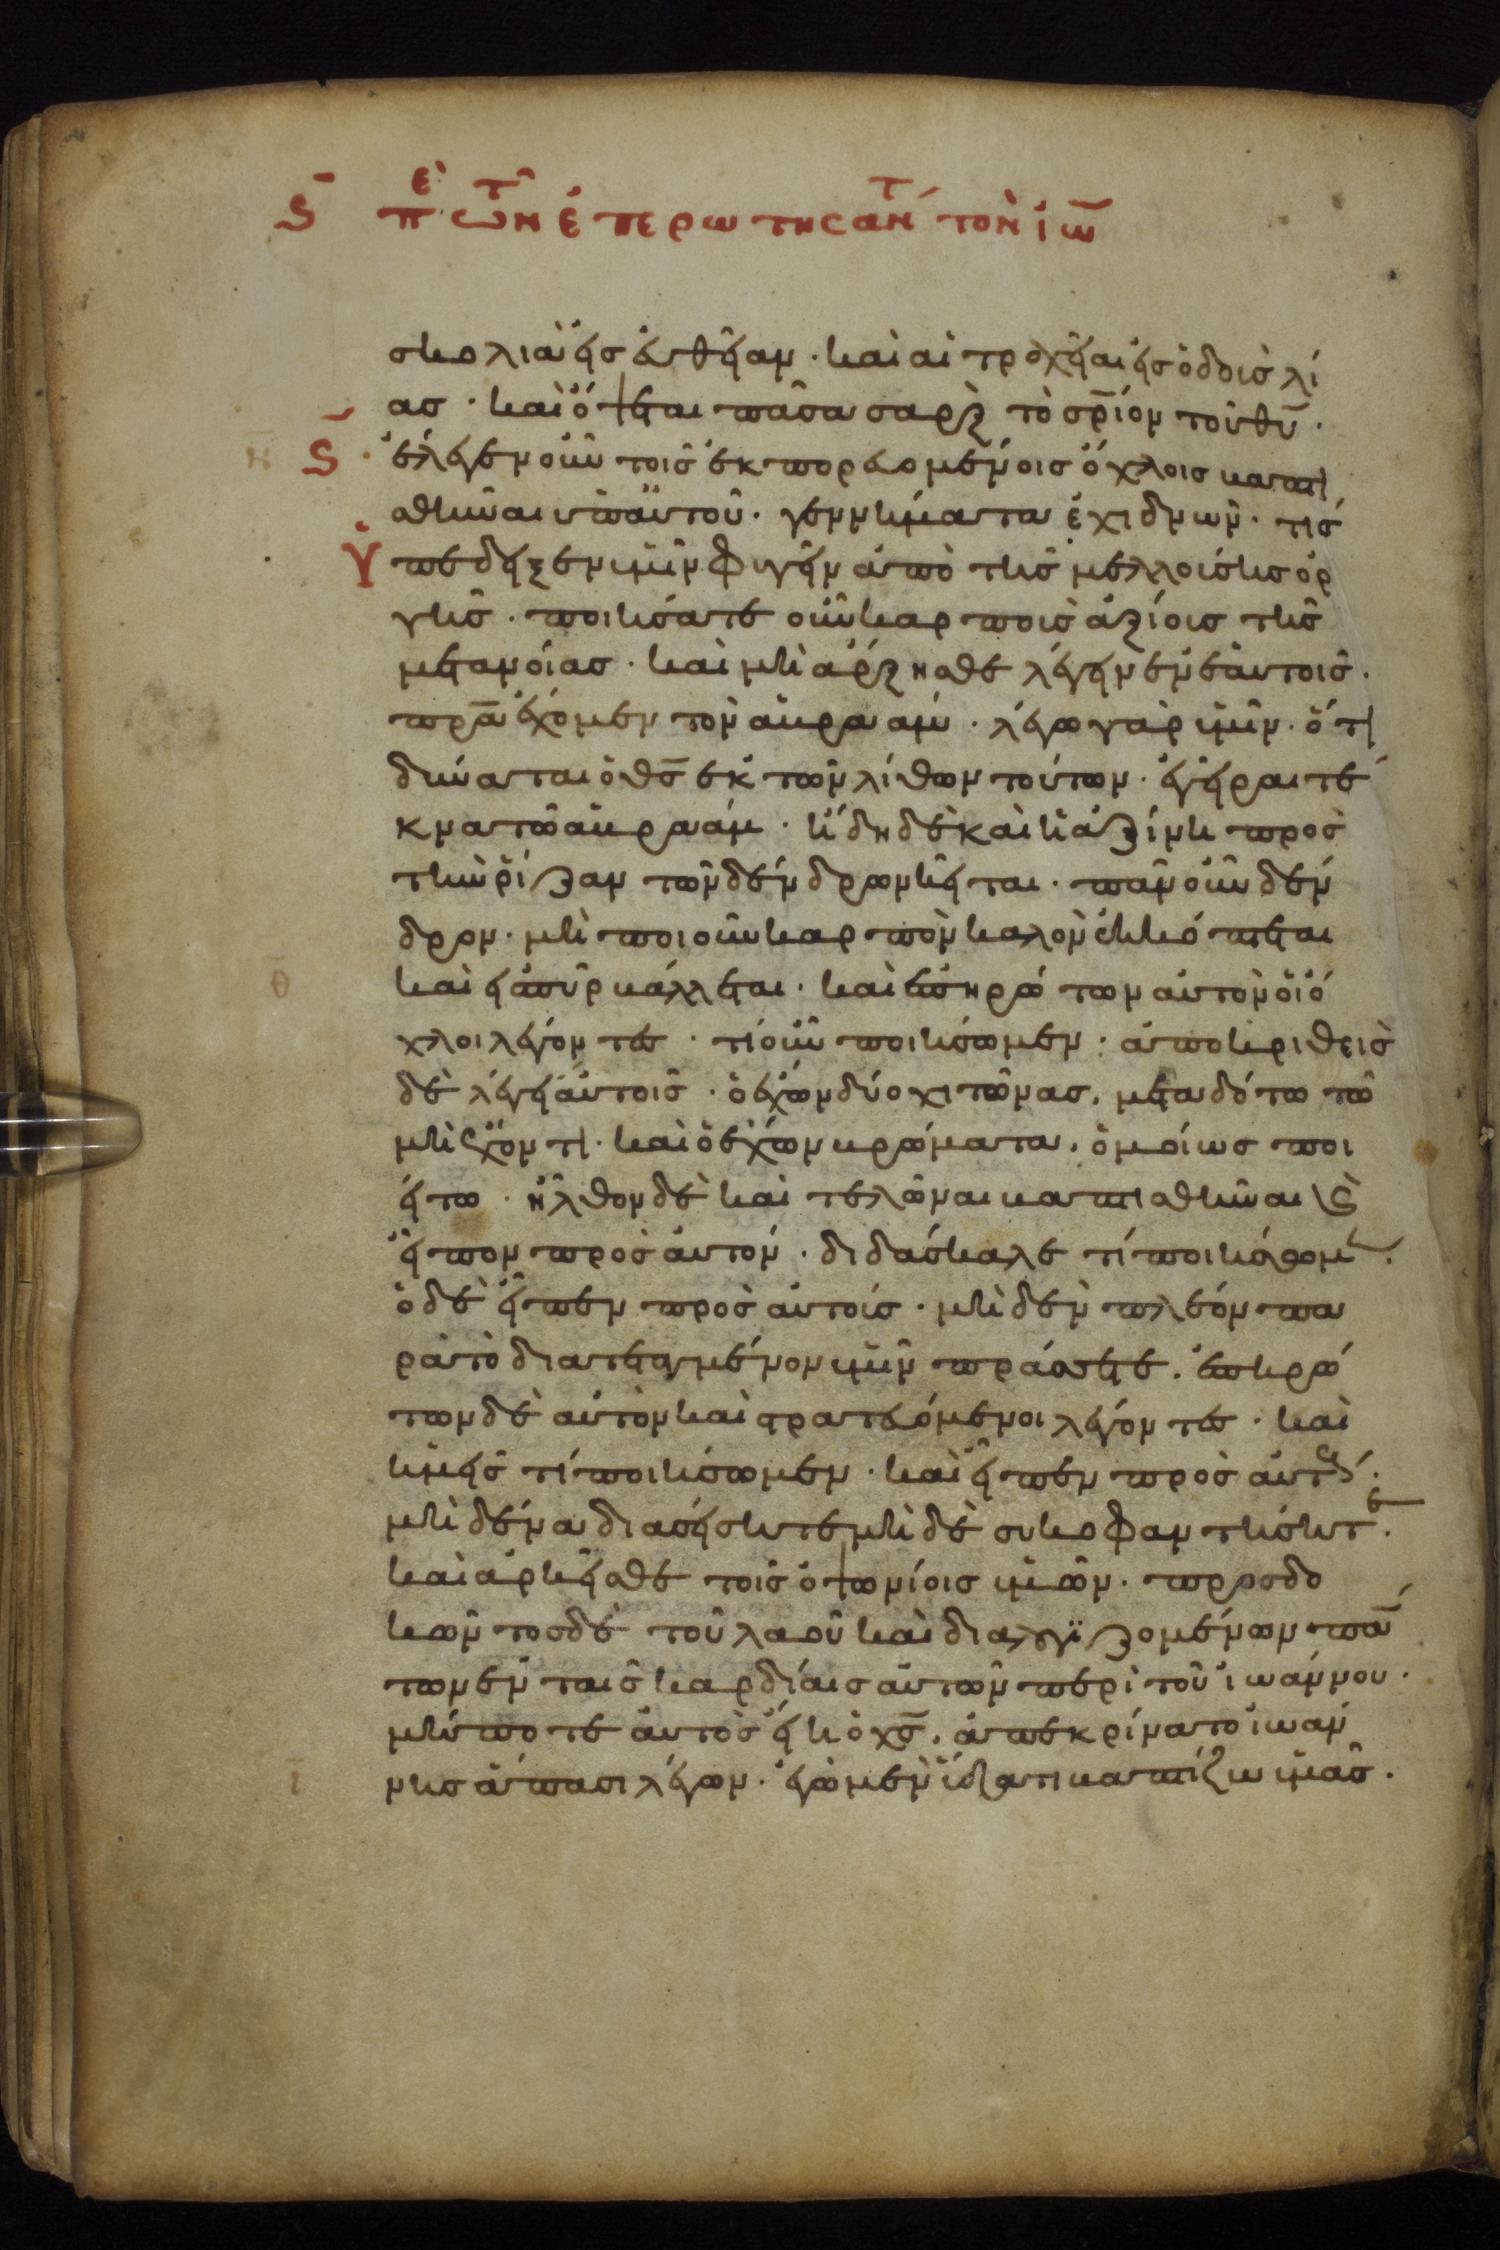 ϛ̄ πὲ τῶν ἐπερωτησάντ(ων) τὸν ἰω̄
σκολιὰ εἰς εὐθεῖαν · καὶ αἱ τροχεῖαι εἰς ὁδοὺς λί
ας · καὶ ὄψεται πᾶσα σὰρξ τὸ σρ̄ίον τοῦ θῡ ·
η̄ ϛ̄ ἔλεγεν οὖν τοῖς ἐκπορευομένοις ὄχλοις βαπτι
σθῆναι ὑπ αὐτοῦ · γεννήματα ἐχιδνῶν · τίς
ὑπέδειξεν ὑμῖν φυγεῖν ἀπὸ τῆς μελλούσης ὀρ
γῆς · ποιήσατε οὖν καρποὺς ἀξίους τῆς
μετανοίας · καὶ μὴ ἄρξησθε λέγειν ἐν ἑαυτοῖς ·
πρ̄α ἔχομεν τὸν ἀβραάμ · λέγω γὰρ ὑμῖν · ὅτι
δύναται ὁ θς̄ ἐκ τῶν λίθων τούτων · ἐγεῖραι τέ
κνα τῶ ἀβραάμ · ἤδη δὲ καὶ ἡ ἀξίνη πρὸς
τὴν ῥίζαν τῶν δένδρων κεῖται · πᾶν οὖν δέν
δρον · μὴ ποιοῦν καρπὸν καλὸν ἐκκόπτεται
θ̄ καὶ εἰς πῦρ βάλλεται · καὶ ἐπηρώτων αὐτὸν οἱ ὄ
χλοι λέγοντες · τί οὖν ποιήσωμεν · ἀποκριθεὶς
δὲ λέγει αὐτοῖς · ὁ ἔχων δύο χιτῶνας, μεταδότω τῶ
μὴ ἔχοντι · καὶ ὁ ἔχων βρώματα, ὁμοίως ποι
είτω · ἦλθον δὲ καὶ τελῶναι βαπτισθῆναι ϗ̀
εἶπον πρὸς αὐτόν · διδάσκαλε τί ποιήσομεν ·
ὁ δὲ εἶπεν πρὸς αὐτούς · μὴδὲν πλέον πα
ρὰ τὸ διατεταγμένον ὑμῖν πράσσετε · ἐπηρώ
των δὲ αὐτὸν καὶ στρατευόμενοι λέγοντες · καὶ
ἡμεῖς τί ποιήσωμεν · καὶ εἶπεν πρὸς αὐτούς ·
μὴδένα διασείσητε μὴδὲ συκοφαντήσητε ·
καὶ ἀρκεῖσθε τοῖς ὀψωνίοις ὑμῶν · προσδο
κῶντος δὲ τοῦ λαοῦ καὶ διαλογιζομένων πάν
των ἐν ταῖς καρδίαις αὐτῶν περὶ τοῦ ἰωάννου ·
μήποτε αὐτὸς εἴη ὁ χς̄ · ἀπεκρίνατο ὁ ἰωάν
ῑ νης ἅπασι λέγων · ἐγὼ μὲν ὕδατι βαπτίζω ὑμᾶς ·